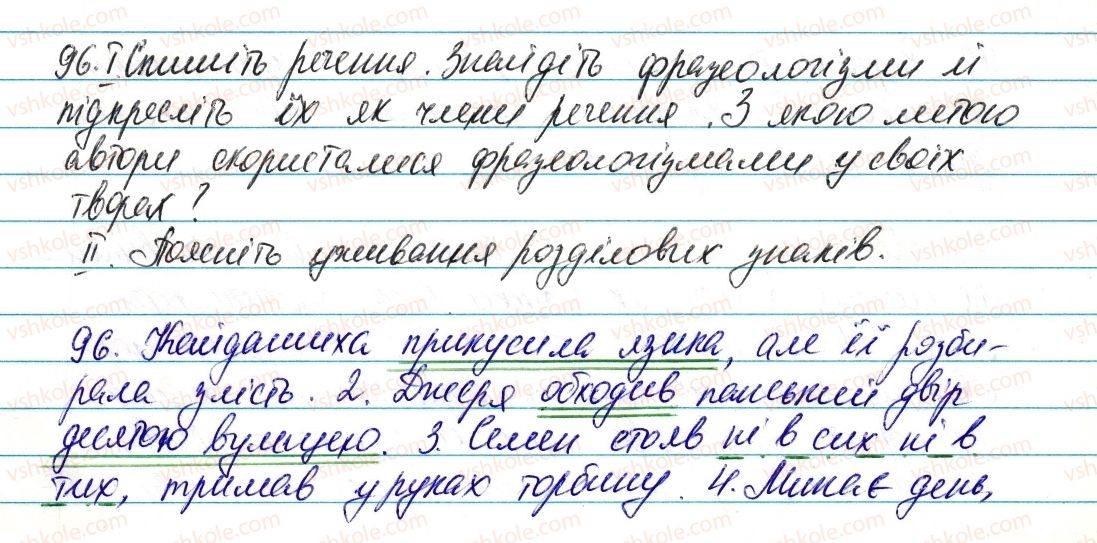 96. I Спишіть речення. Знайдіть фразеологізми й
підкресліть їх як члени речення. З якою метою
автори скористалися фразеологізмами у своїх
творах?
II. Поясніть уживання розділових знаків.
96. Кайдашиха прикусила язика, але її розби-
рала злість. 2. Джеря обходив панський двір
десятою вулицею. 3. Семен стояв ні в сих ні в
тих, тримав у руках торбину. 4. Минає день,